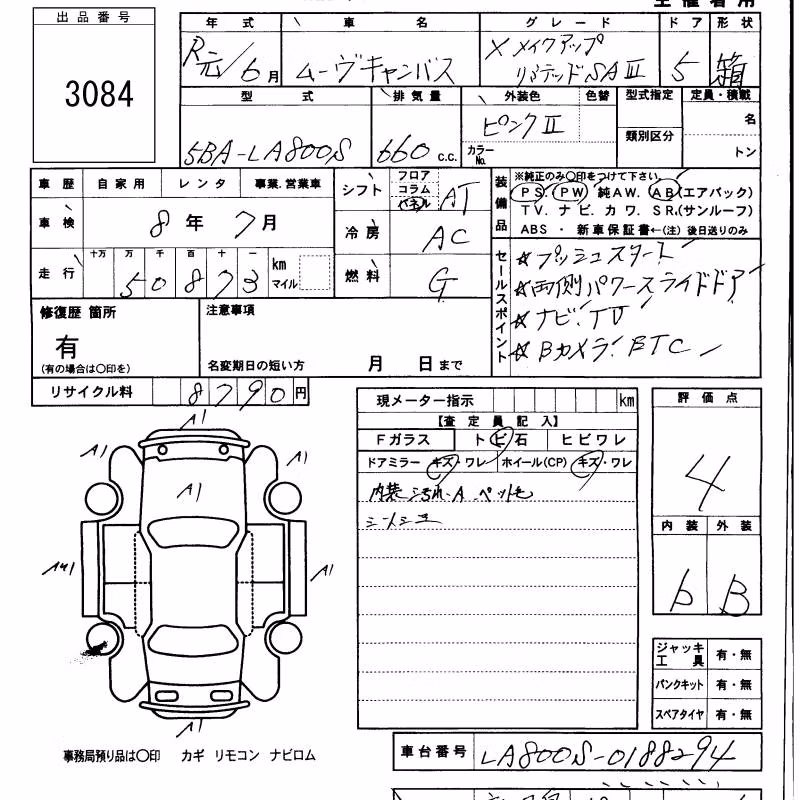 出品番号
3084
年式 車名 グレード ドア 形状
R元/6月 ムーヴキャンバス Xメイクアップ
リミテッドSAⅢ 5 箱
型式 排気量 外装色 色替 型式指定 定員・積載
5BA-LA800S 660 c.c. ピンクⅡ
カラーNo. 類別区分 名
トン
車歴 自家用 レンタ 事業.営業車
車検 8年 7月
走行 十万 万 千 百 十 一
50873 km
マイル
シフト フロア
コラム
パネル AT
冷房 AC
燃料 G
装備品 ※純正のみ〇印をつけて下さい
PS. PW 純AW. AB(エアバック)
TV. ナビ. カワ. SR.(サンルーフ)
ABS ・ 新車保証書←(注) 後日送りのみ
セールスポイント
☆プッシュスタート
☆両側パワースライドドア
☆ナビ.TV
☆Bカメラ.ETC
修復歴 箇所
有
(有の場合は〇印を)
注意事項
名変期日の短い方 月 日まで
リサイクル料 8790円
A1
A1
A1
A1
A1
A1
現メーター指示 km
【査定員記入】
Fガラス トビ石 ヒビワレ
ドアミラー キズ・ワレ ホイール(CP) キズ・ワレ
内装 汚れ-A ペット毛
評価点
4
内装 外装
b B
ジャッキ工具 有・無
パンクキット 有・無
スペアタイヤ 有・無
事務局預り品は〇印 カギ リモコン ナビロム
車台番号 LA800S-0188294